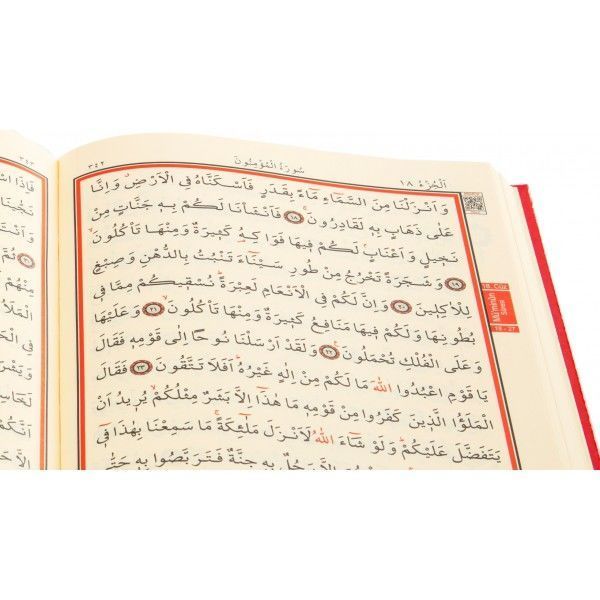 ٣٤٢ سُورَةُ الْمُؤْمِنُونَ اَلْجُزْءُ ١٨
وَاَنْزَلْنَا مِنَ السَّمَٓاءِ مَٓاءً بِقَدَرٍ فَاَسْكَنَّاهُ فِي الْاَرْضِۗ وَاِنَّا
عَلٰى ذَهَابٍ بِهٖ لَقَادِرُونَۚ ﴿١٨﴾ فَاَنْشَأْنَا لَكُمْ بِهٖ جَنَّاتٍ مِنْ
نَخٖيلٍ وَاَعْنَابٍۢ لَكُمْ فٖيهَا فَوَاكِهُ كَثٖيرَةٌ وَمِنْهَا تَأْكُلُونَۙ
﴿١٩﴾ وَشَجَرَةً تَخْرُجُ مِنْ طُورِ سَيْنَٓاءَ تَنْبُتُ بِالدُّهْنِ وَصِبْغٍ
لِلْاٰكِلٖينَ ﴿٢٠﴾ وَاِنَّ لَكُمْ فِي الْاَنْعَامِ لَعِبْرَةًۜ نُسْقٖيكُمْ مِمَّا فٖي
بُطُونِهَا وَلَكُمْ فٖيهَا مَنَافِعُ كَثٖيرَةٌ وَمِنْهَا تَأْكُلُونَۙ ﴿٢١﴾ وَعَلَيْهَا
وَعَلَى الْفُلْكِ تُحْمَلُونَ۟ ﴿٢٢﴾ وَلَقَدْ اَرْسَلْنَا نُوحًا اِلٰى قَوْمِهٖ فَقَالَ
يَا قَوْمِ اعْبُدُوا اللّٰهَ مَا لَكُمْ مِنْ اِلٰهٍ غَيْرُهُۜ اَفَلَا تَتَّقُونَ ﴿٢٣﴾ فَقَالَ
الْمَلَؤُا الَّذٖينَ كَفَرُوا مِنْ قَوْمِهٖ مَا هٰذَٓا اِلَّا بَشَرٌ مِثْلُكُمْۙ يُرٖيدُ اَنْ
يَتَفَضَّلَ عَلَيْكُمْۜ وَلَوْ شَٓاءَ اللّٰهُ لَاَنْزَلَ مَلٰٓئِكَةًۚ مَا سَمِعْنَا بِهٰذَا فٖٓي
رَجُلٌ بِهٖ جِنَّةٌ فَتَرَبَّصُوا بِهٖ حَتّٰى
18. CÜZ
Mü'minûn
Sûresi
18 - 27
٣٤٣